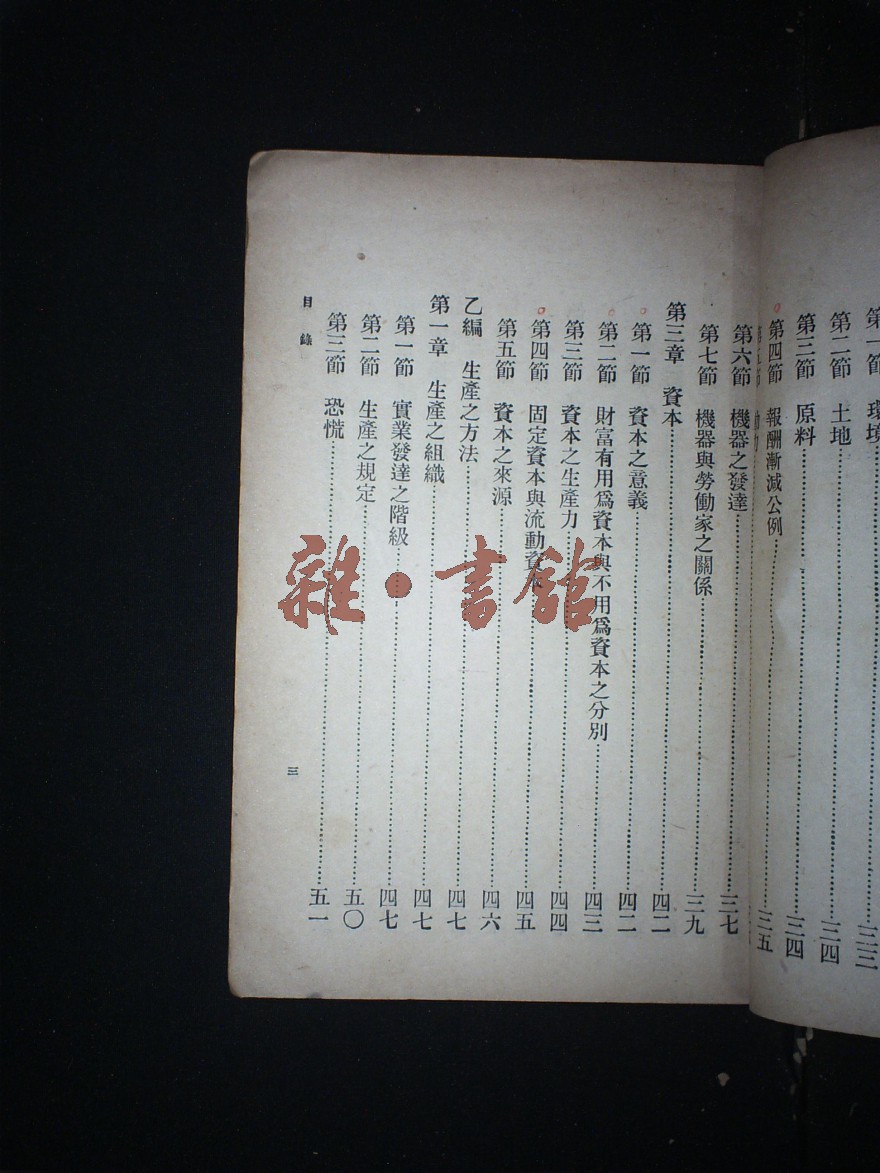 第一節 環境……三三
第二節 土地……三四
第三節 原料……三四
第四節 報酬漸減公例……三五
第六節 機器之發達……三七
第七節 機器與勞働家之關係……三九
第三章 資本……四二
第一節 資本之意義……四二
第二節 財富有用爲資本與不用爲資本之分別……四三
第三節 資本之生產力……四四
第四節 固定資本與流動資本……四五
第五節 資本之來源……四六
乙編 生產之方法……四七
第一章 生產之組織……四七
第一節 實業發達之階級……四七
第二節 生產之規定……五〇
第三節 恐慌……五一
目錄
三
雜·書舘